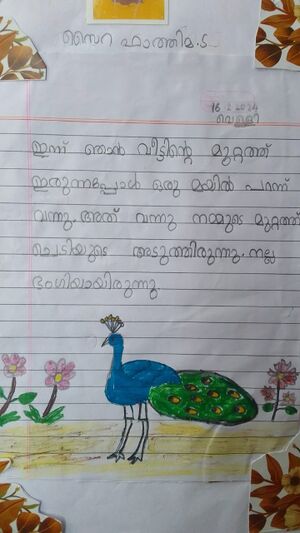 സൈറ ഫാത്തിമ.ട
16 2 2024
വെള്ളി
ഇന്ന് ഞാൻ വീട്ടിന്റെ മുറ്റത്ത്
ഇരുന്നപ്പോൾ ഒരു മയിൽ പറന്ന്
വന്നു. അത് വന്നു നമ്മുടെ മുറ്റത്ത്
ചെടിയുടെ അടുത്തിരുന്നു. നല്ല
ഭംഗിയായിരുന്നു